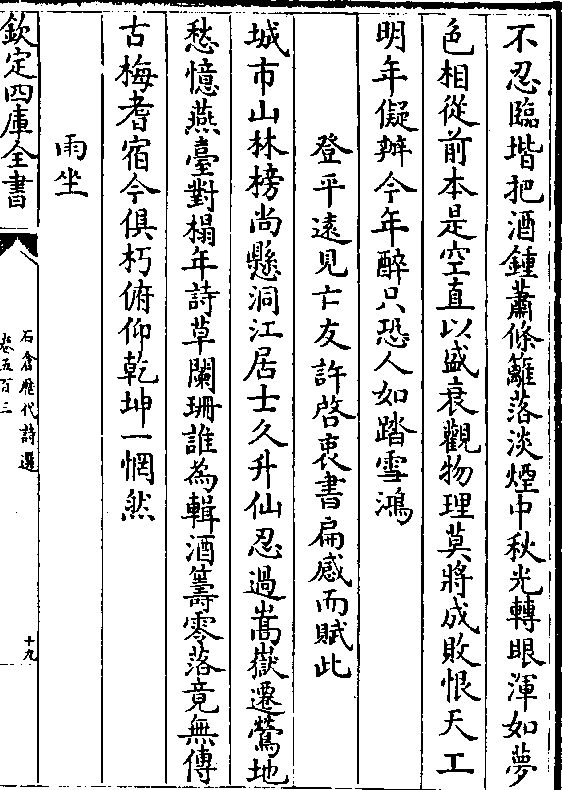 不忍臨堦把酒鍾蕭條籬落淡煙中秋光轉眼渾如夢
色相從前本是空直以盛衰觀物理莫將成敗恨天工
明年儗辦今年醉只恐人如踏雪鴻
登平遠見亡友許啓衷書扁感而賦此
城市山林榜尚懸洞江居士久升仙忍過嵩嶽遷鶯地
愁憶燕臺對榻年詩草闌珊誰為輯酒籌零落竟無傳
古梅耆宿今俱朽俯仰乾坤一惘然
雨坐
欽定四庫全書
石倉歷代詩選
卷五百三
十九